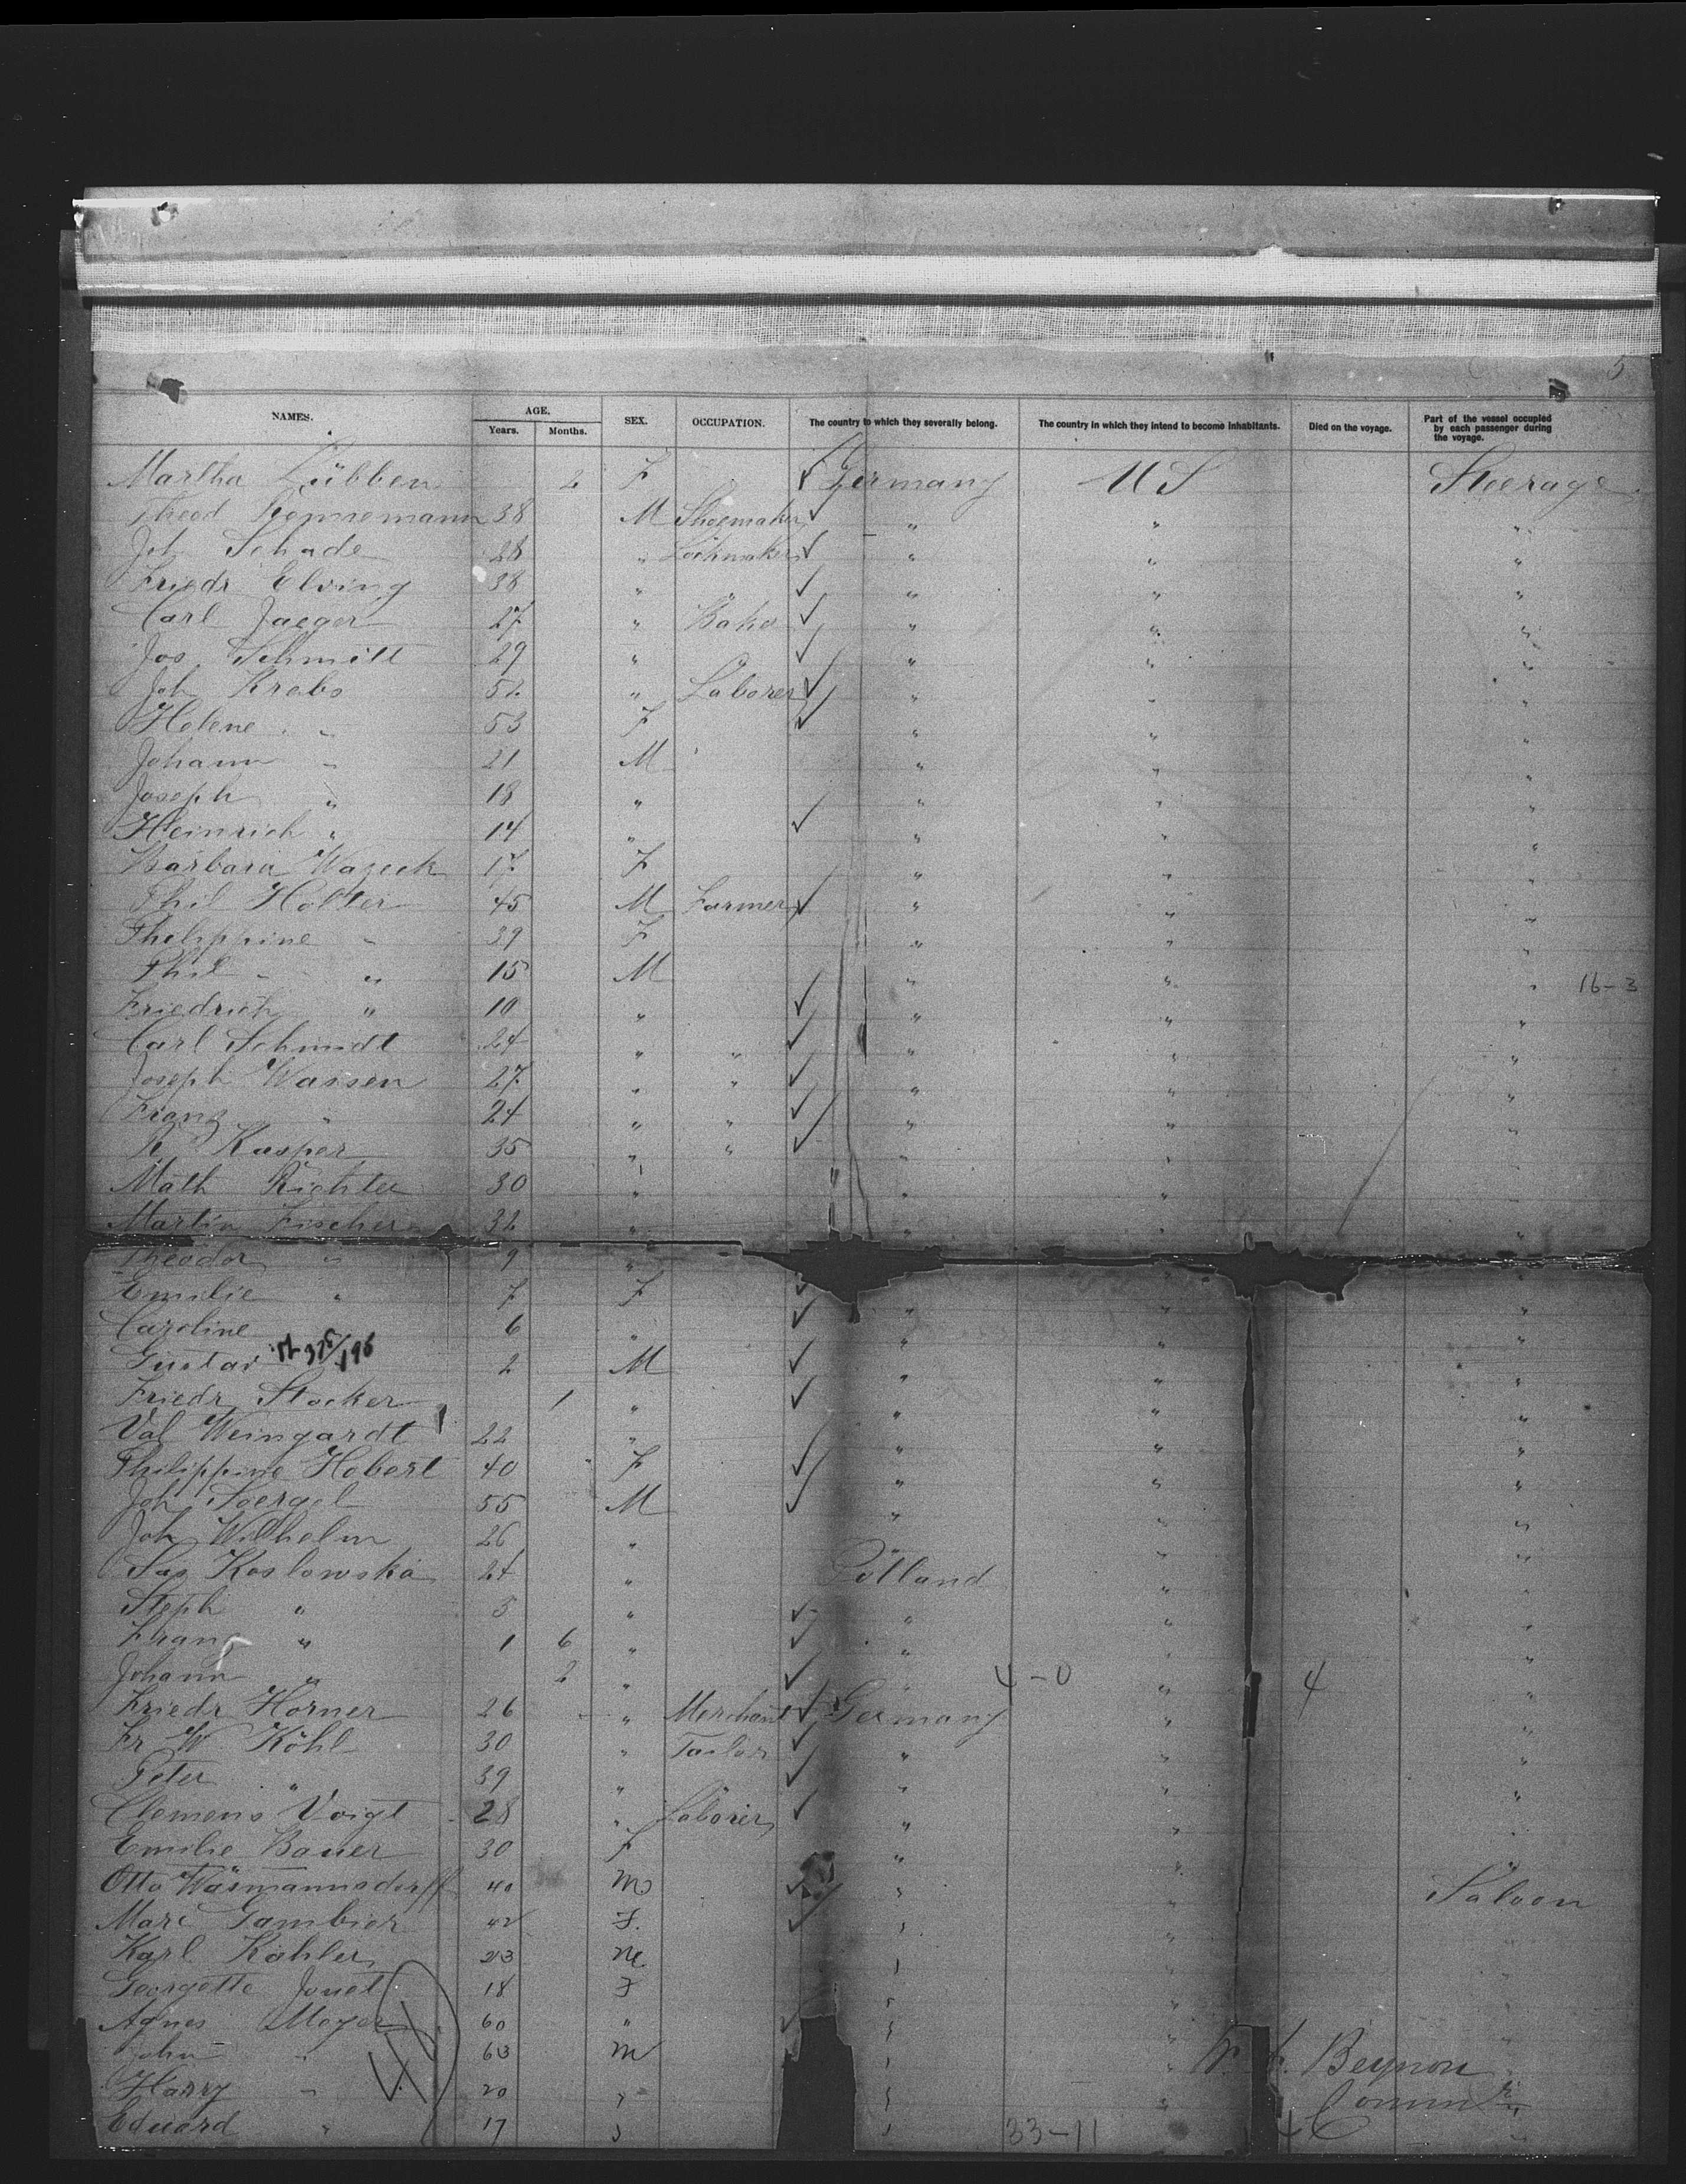 5
NAMES. AGE. Years. Months. SEX. OCCUPATION. The country to which they severally belong. The country in which they intend to become inhabitants. Died on the voyage. Part of the vessel occupied by each passenger during the voyage.
Martha Lübben 2 F Germany U S Steerage
Theod 38 M Shoemaker " " "
Joh Schade 28 " Lockmaker " " "
Friedr Elving 38 " " " "
Carl Jaeger 27 " Baker " " "
Jos. Schmitt 29 " " " "
Joh Krebs 52 " Laborer " " "
Helene " 53 F " " "
Johann " 21 M " " "
Joseph " 18 " " " "
Heinrich " 14 " " " "
Barbara Wazeck 17 F " " "
Phil Holler 45 M Farmer " " "
Philippine " 39 F " " "
Phil " 15 M " " " 16-3
Friedrich " 10 " " " "
Carl Schmidt 24 " " " " "
Joseph Wassen 27 " " " " "
Franz " 24 " " " " "
N Kasper 35 " " " " "
Math Richter 30 " " " "
Martin Fischer 32 " " " "
Theodor " 9 " "
Emilie " 7 F " "
Caroline 6 " " " "
Gustav 2 M " " "
Friedr Stocker 1 " " " "
Val Weingardt 22 " " " "
Philippine Hobert 40 F " " "
Joh Soergel 55 M " " "
Joh Wilhelm 26 " " " "
Koslowska 24 " Polland " "
Steph " 5 " " " "
Franz " 1 6 " " " "
Johann " 2 " " 4-0 " 4 "
Friedr Horner 26 " Merchant Germany " "
Fr W Köhl 30 " Tailor " " "
Peter " 39 " " " "
Clemens Voigt 28 " Laborer " " "
Emilie Bauer 30 F " " "
Otto Wasmannsdorff 40 M " " Saloon
Marc Gambier 42 F. " " "
Karl Köhler 23 M. " " "
Georgette Jouet 18 F " " "
Agnes Meyer 60 " " " "
John " 63 M " " Beynon
Harry " 20 " " " Commr
Eduard " 17 " " 33-11 "